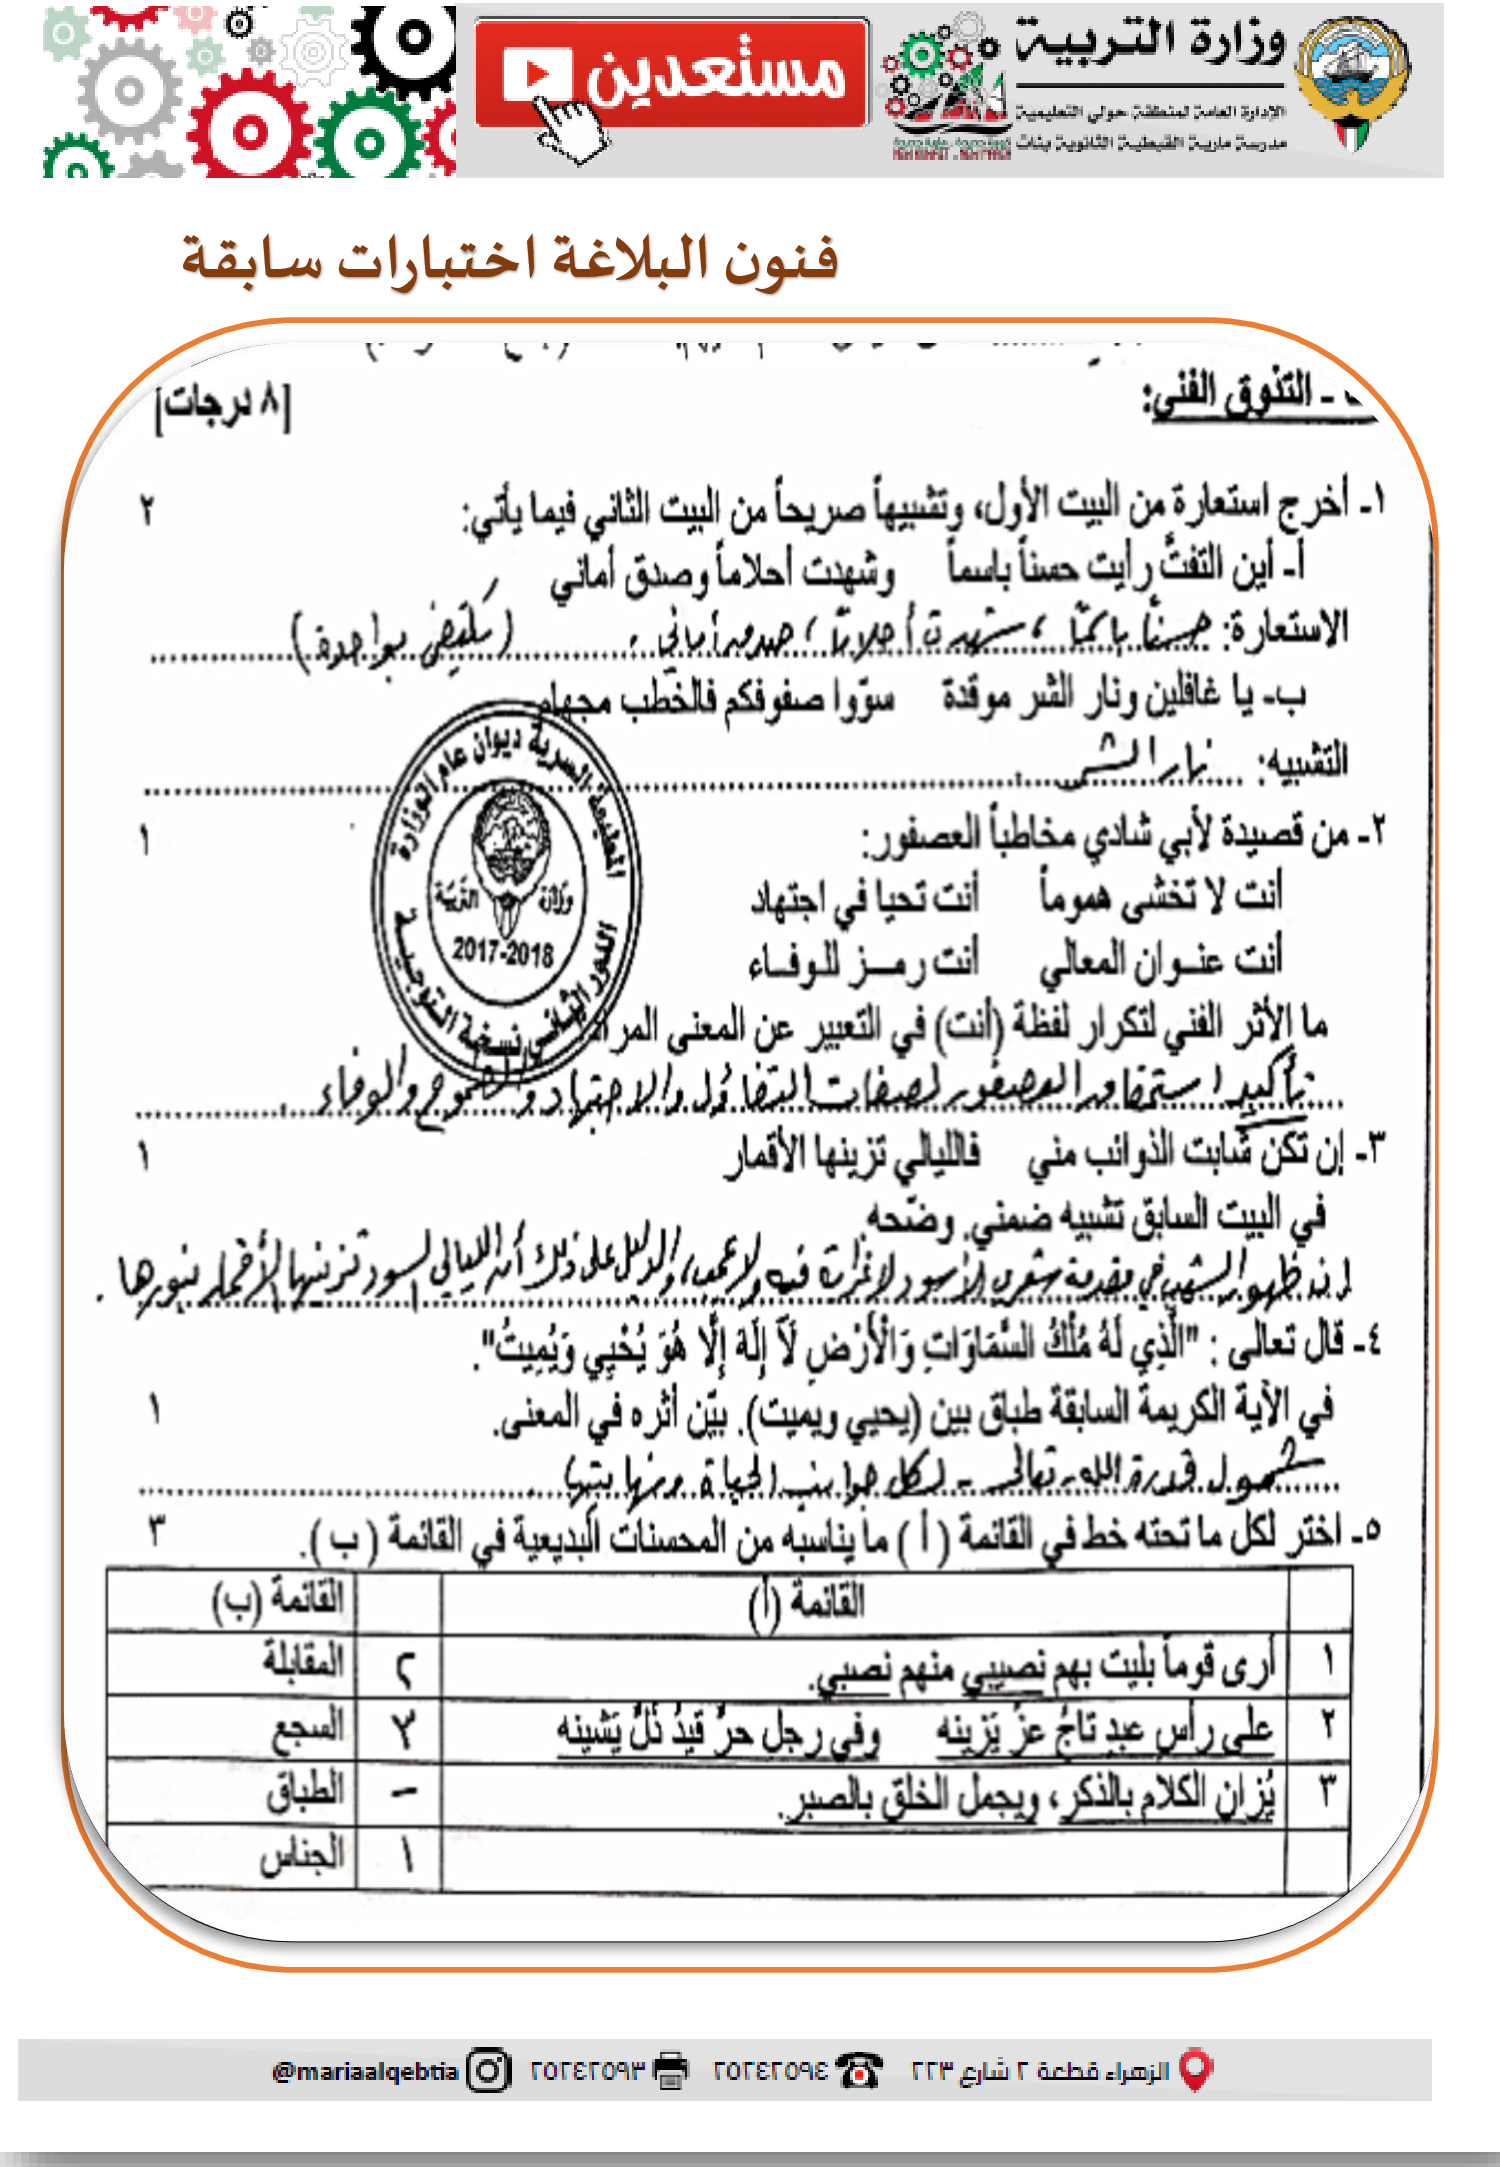 وزارة التربية
الإدارة العامة لمنطقة حولي التعليمية
مدرسة مارية القبطية الثانوية بنات
مستعدين
فنون البلاغة اختبارات سابقة
ـ التذوق الفني:
[٨ درجات]
١ـ أخرج استعارة من البيت الأول، وتشبيهاً صريحاً من البيت الثاني فيما يأتي:
٢
أ ـ أين التفتَّ رأيت حسناً باسماً وشهدت أحلاماً وصدق أماني
الاستعارة: حسناً باسماً ، شهدت أحلاماً ، صدق أماني . (يكتفى بواحدة)
ب ـ يا غافلين ونار الشر موقدة سوّوا صفوفكم فالخطب مجهام
التشبيه: نار الشر .
٢ـ من قصيدة لأبي شادي مخاطباً العصفور:
١
أنت لا تخشى هموماً أنت تحيا في اجتهاد
أنت عنوان المعالي أنت رمز للوفاء
ما الأثر الفني لتكرار لفظة (أنت) في التعبير عن المعنى المراد
تأكيد استحقاق العصفور لصفات التفاؤل والاجتهاد والطموح والوفاء .
٣ـ إن تكن شابت الذوائب مني فالليالي تزينها الأقمار
١
في البيت السابق تشبيه ضمني. وضّحه.
إن ظهور الشيب في مقدمة شعري الأسود لا غرابة فيه ولا عيب، والدليل على ذلك أن الليالي السود تزينها الأقمار بنورها .
٤ـ قال تعالى : "الَّذِي لَهُ مُلْكُ السَّمَاوَاتِ وَالْأَرْضِ لَا إِلَهَ إِلَّا هُوَ يُحْيِي وَيُمِيتُ".
في الآية الكريمة السابقة طباق بين (يحيي ويميت). بيّن أثره في المعنى.
١
شمول قدرة الله تعالى ـ لكل جوانب الحياة ونهايتها .
٥ـ اختر لكل ما تحته خط في القائمة ( أ ) ما يناسبه من المحسنات البديعية في القائمة ( ب ).
٣
القائمة (أ) القائمة (ب)
١ أرى قوماً بليت بهم نصيبي منهم نصبي. ٢ المقابلة
٢ على رأس عبدِ تاجُ عزّ يَزينه وفي رجل حرٍّ قيدُ ذُلٍّ يَشينه ٣ السجع
٣ يُزان الكلام بالذكر، ويجمل الخلق بالصبر. – الطباق
١ الجناس
المطبعة السرية ديوان عام الوزارة
وزارة التربية
2017-2018
الدور الثاني نسخة التوجيه
الزهراء قطعة ٢ شارع ٢٢٣ ٢٥٢٤٢٥٩٤ ٢٥٢٤٢٥٩٣ @mariaalqebtia